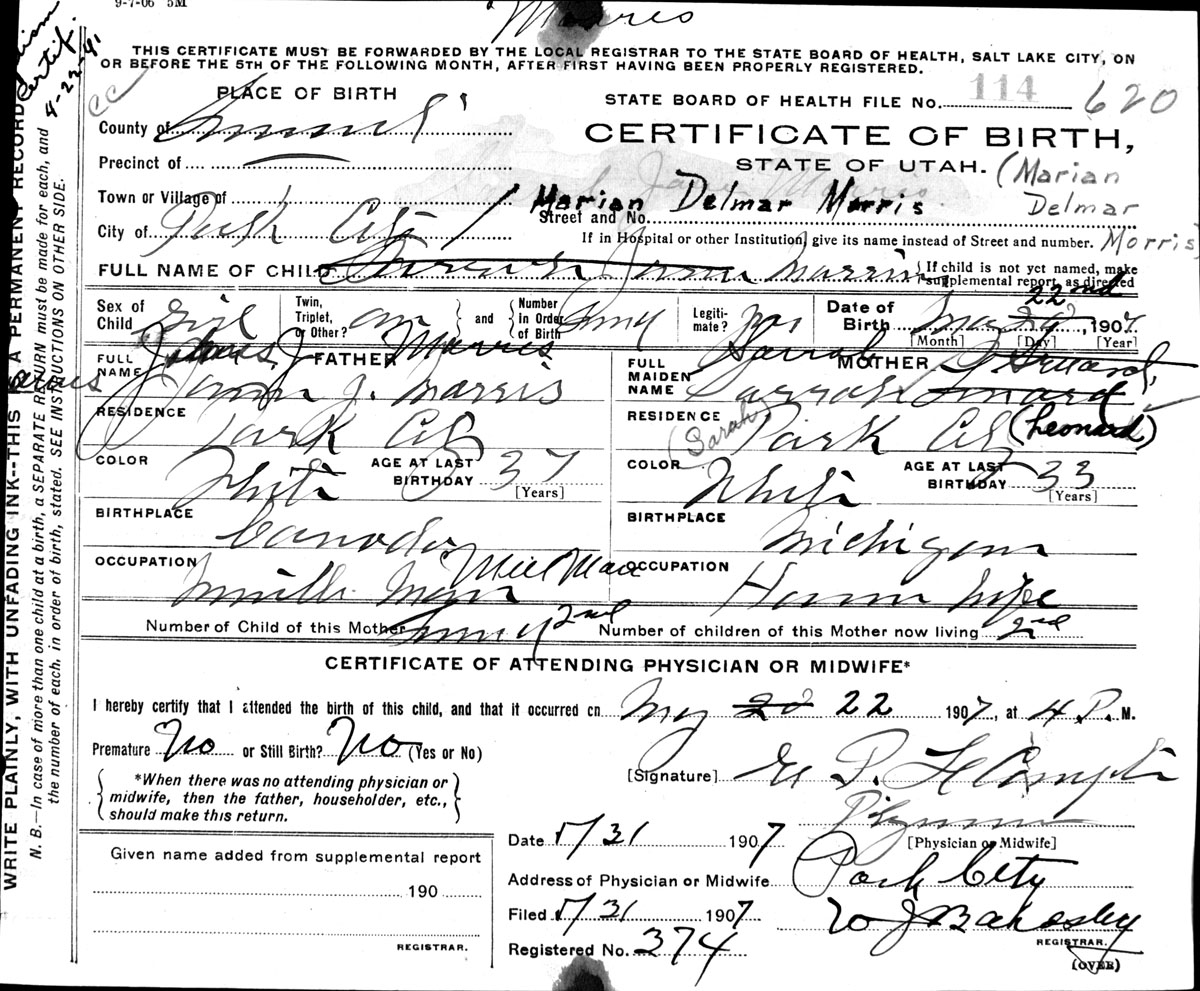 9-7-06 5M
Morres
THIS CERTIFICATE MUST BE FORWARDED BY THE LOCAL REGISTRAR TO THE STATE BOARD OF HEALTH, SALT LAKE CITY, ON
OR BEFORE THE 5TH OF THE FOLLOWING MONTH, AFTER FIRST HAVING BEEN PROPERLY REGISTERED.
WRITE PLAINLY, WITH UNFADING INK--THIS IS A PERMANENT RECORD
N. B.—In case of more than one child at a birth, a SEPARATE RETURN must be made for each, and
the number of each, in order of birth, stated. SEE INSTRUCTIONS ON OTHER SIDE.
Certif.
4-22-41
CC
PLACE OF BIRTH
STATE BOARD OF HEALTH FILE No. 114 620
County of Summit
CERTIFICATE OF BIRTH,
Precinct of
STATE OF UTAH. (Marian
Delmar
Morris)
Town or Village of
Marian Delmar Morris
Street and No.
City of Park City
If in Hospital or other Institution, give its name instead of Street and number.
FULL NAME OF CHILD Morris
If child is not yet named, make
supplemental report, as directed
Sex of Child girl
Twin, Triplet, or Other?
and
Number In Order of Birth
Legiti-mate? yes
Date of Birth May 22nd, 1907
[Month] [Day] [Year]
FULL NAME
FATHER
James J. Morris
FULL MAIDEN NAME
MOTHER
Sarrah
Sarrah
RESIDENCE
Park City
RESIDENCE
(Sarah) Park City (Leonard)
COLOR White
AGE AT LAST BIRTHDAY 37
[Years]
COLOR White
AGE AT LAST BIRTHDAY 33
[Years]
BIRTHPLACE
Canada
BIRTHPLACE
Michigan
OCCUPATION
Mill Man
Mill Man
OCCUPATION
House Wife
Number of Child of this Mother 2nd
Number of children of this Mother now living 2nd
CERTIFICATE OF ATTENDING PHYSICIAN OR MIDWIFE*
I hereby certify that I attended the birth of this child, and that it occurred on May 20 22 1907, at 4 P. M.
Premature No or Still Birth? No (Yes or No)
[Signature] LeCompte
*When there was no attending physician or
midwife, then the father, householder, etc.,
should make this return.
[Physician or Midwife]
Date 5/31 1907
Given name added from supplemental report
190
REGISTRAR.
Address of Physician or Midwife Park City
Filed 5/31 1907
REGISTRAR.
Registered No. 374
(OVER)